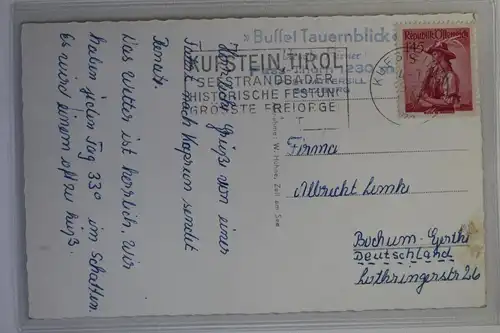 »Büffet Tauernblick«
1230 m
KUFSTEIN, TIROL
SEESTRANDBÄDER
HISTORISCHE FESTUNG
GRÖSSTE FREIORGEL
REPUBLIK ÖSTERREICH
1.45
S
Herzlichen Gruß von einer
Fahrt nach Kaprun sendet
Renate.
Das Wetter ist herrlich. Wir
haben jeden Tag 33° im Schatten.
Es wird einem oft zu heiß.
W. Hühne, Zell am See
Firma
Albrecht Lemke
Bochum-Gerthe
Deutschland
Lothringerstr 26